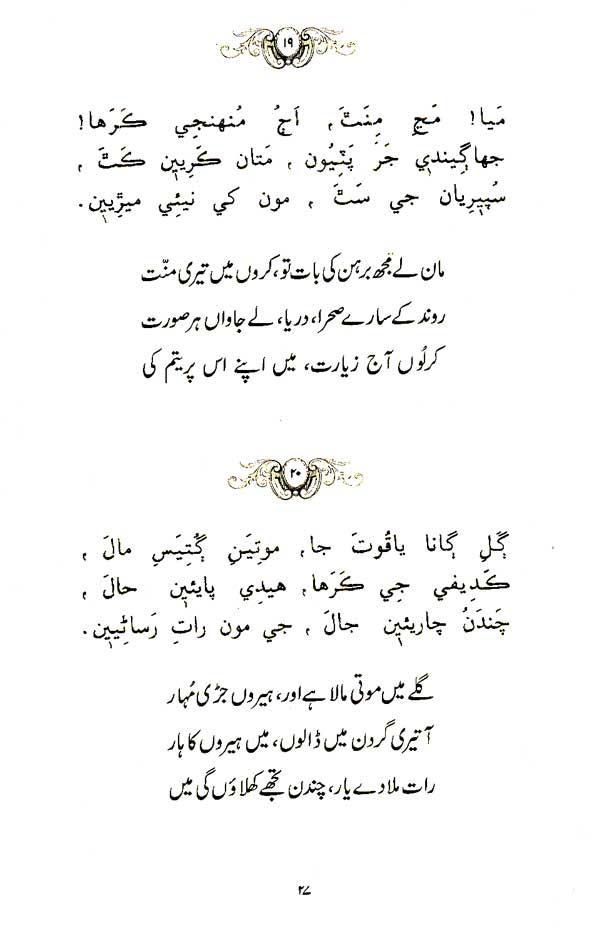 ۱۹
مَيا! مَڃِ مِنَٿَ، اَڄُ مُنهنجِي ڪَرَها!
جهاڳِيندي جَرَ پَٽِيُون، مَتان ڪَرِيين ڪَٿَ،
سُپيرِيان جي سَٿَ، مون کي نيئِي ميڙِيين.
مان لے مجھ برہن کی بات تو، کروں میں تیری منّت
روند کے سارے صحرا، دریا، لے جا واں ہر صورت
کرلُوں آج زیارت، میں اپنے اس پریتم کی
۲۰
ڳَلِ ڳانا ياقُوتَ جا، موتِيَنِ ڳُتِيَسِ مالَ،
ڪَدِيفي جي ڪَرَها، هيدِي پائيين حالَ،
چَندَنُ چارِيئين جالَ، جي مون راتِ رَسائِيين.
گلے میں موتی مالا ہے اور، ہیروں جڑی مُہار
آ تیری گردن میں ڈالوں، میں ہیروں کا ہار
رات ملا دے یار، چندن تجھے کھلاؤں گی میں
۲۷